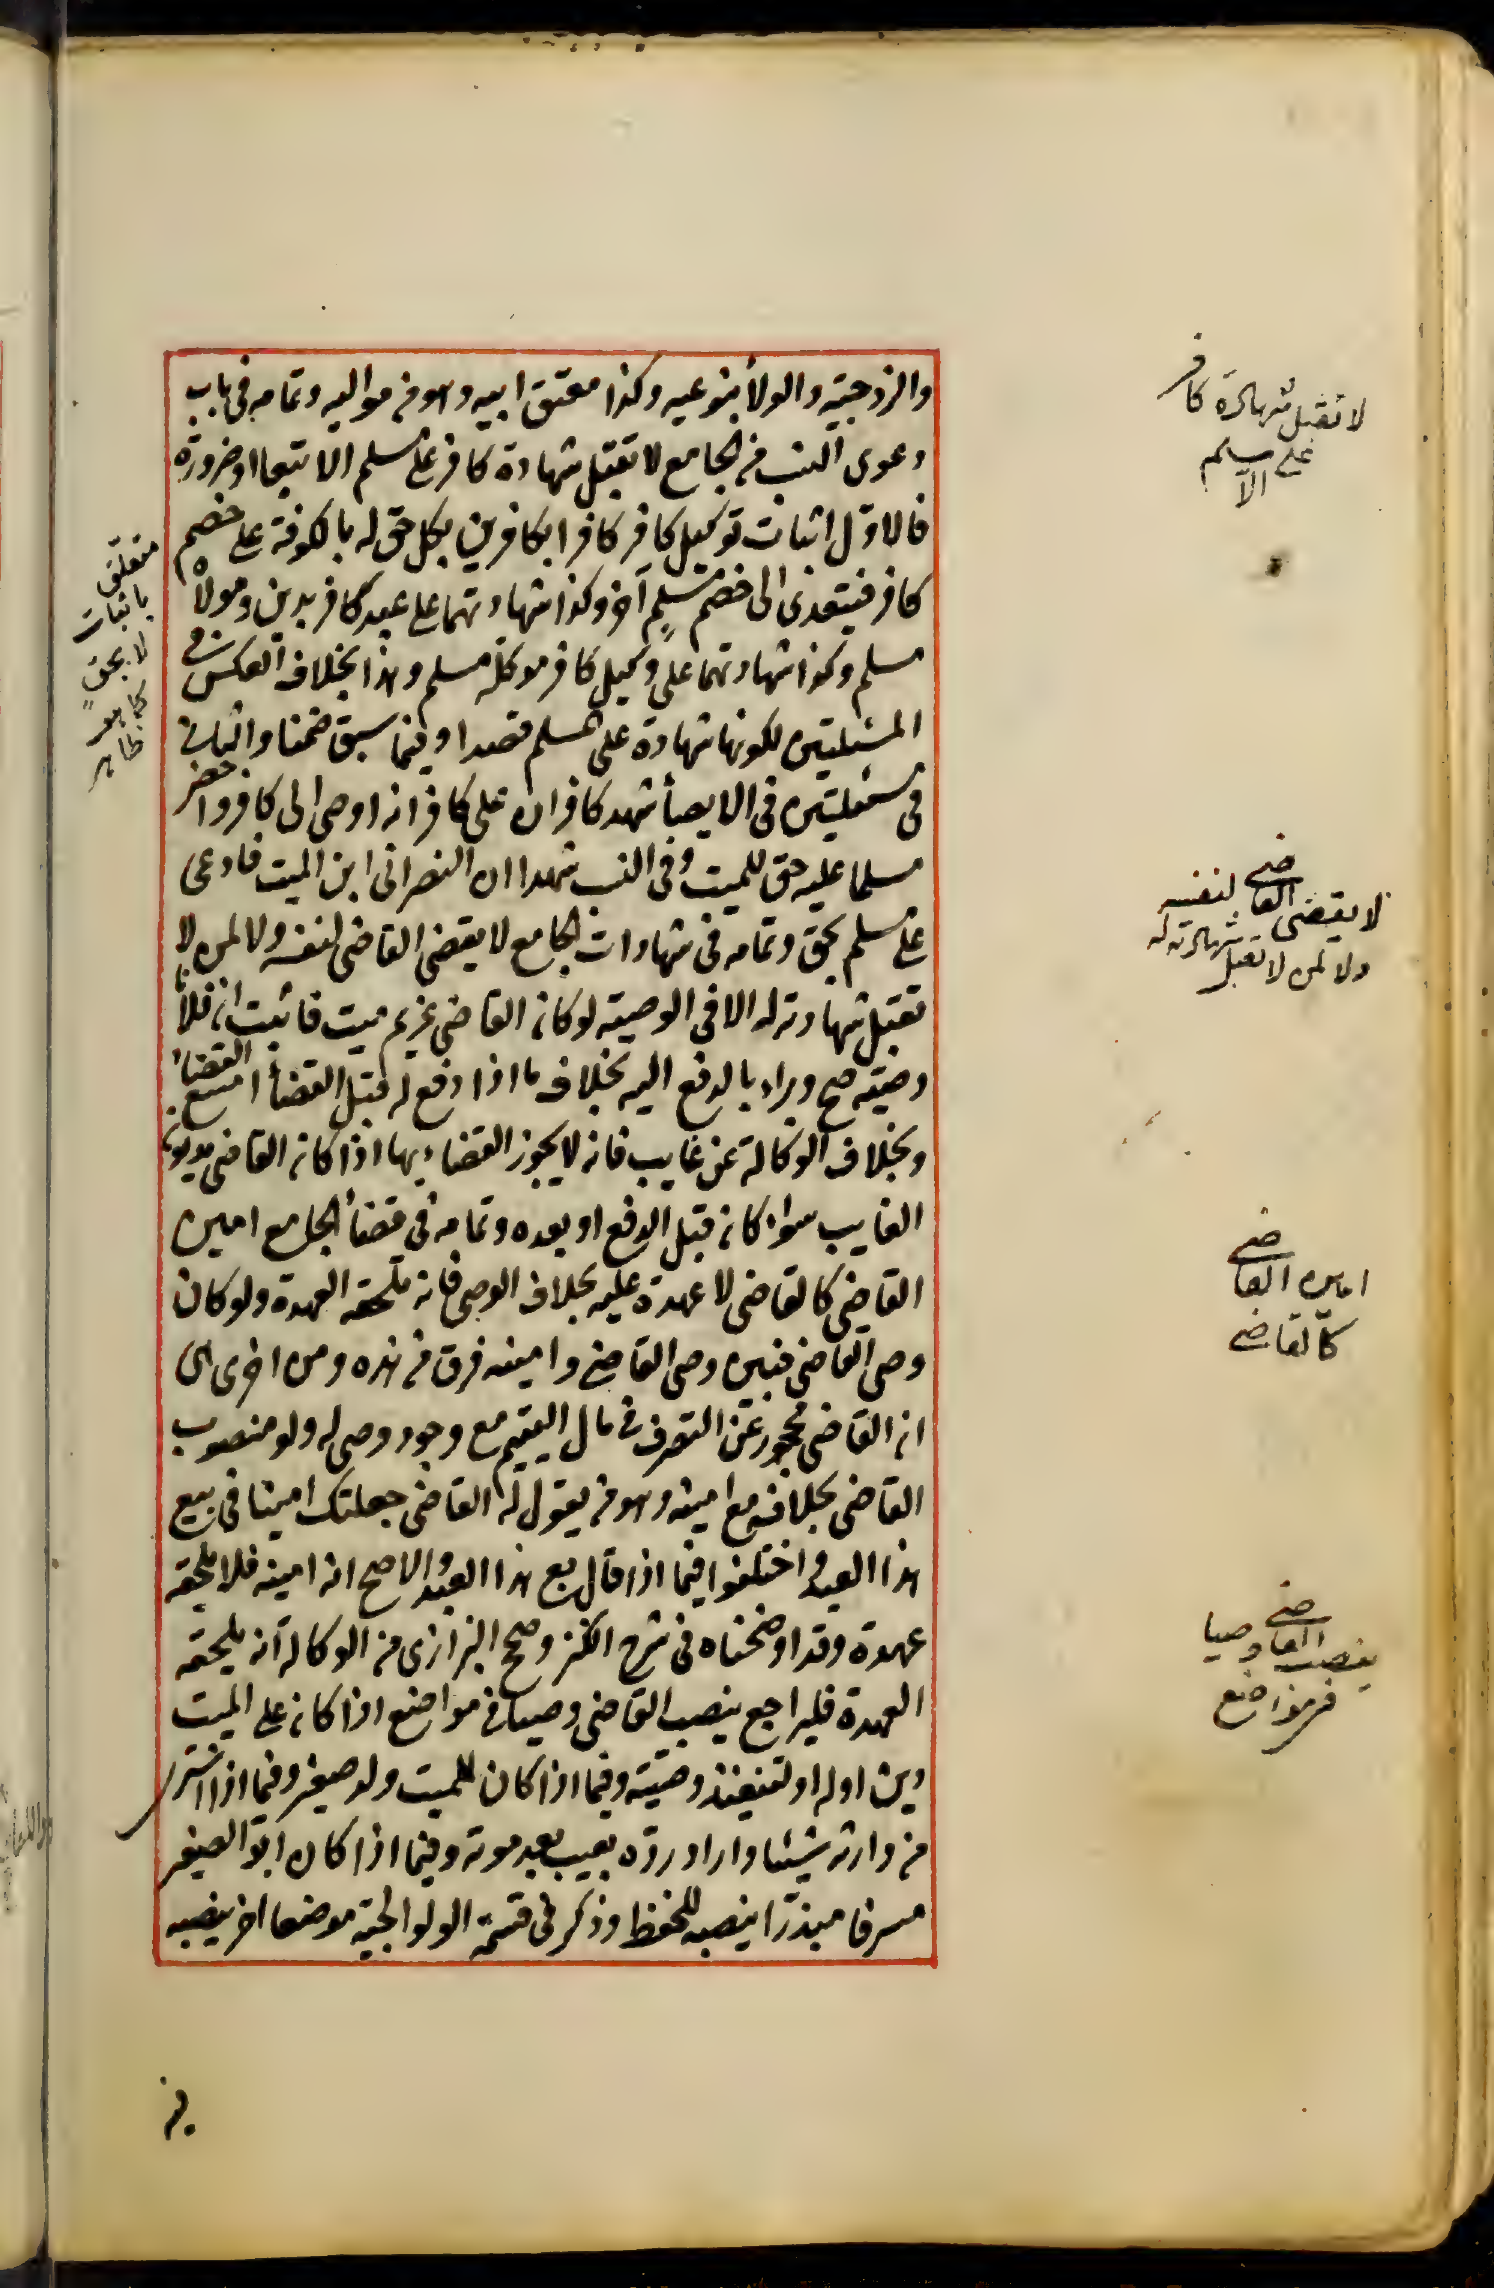 والزوجية والولأ بنوعيه وكذا معتق ابيه وهو من مواليه وتمامه في باب
دعوى النسب من الجامع لا تقبل شهادة كافر على مسلم الا تبعا او ضرورة
فالاول اثبات توكيل كافر كافرا بكافرين بكل حق له بالكوفة على خصم
كافر فيتعدى الى خصم مسلم آخر وكذا شهادتهما على عبد كافر بدين ومولاه
مسلم وكذا شهادتهما على وكيل كافر موكله مسلم وهذا بخلاف العكس في
المسئلتين لكونها شهادة على المسلم قصدا وفيما سبق ضمنا والثاني
في مسئلتين في الايصأ شهد كافران على كافر انه اوصى الى كافر واحضر
مسلما عليه حق للميت وفي النسب شهدا ان النصراني ابن الميت فادعى
على مسلم بحق وتمامه في شهادات الجامع لا يقضي القاضي لنفسه ولا لمن لا
تقبل شهادته له الا في الوصية لو كان القاضي غريم ميت فاثبت ان فلانا
وصيته صح وبراء بالدفع اليه بخلاف ما اذا دفع له قبل القضأ امتنع القضاء
وبخلاف الوكالة عن غايب فانه لا يجوز القضاء بها اذا كان القاضي مديون
الغايب سواء كان قبل الدفع او بعده وتمامه في قضأ الجامع امين
القاضي كالقاضي لا عهدة عليه بخلاف الوصي فانه تلحقه العهدة ولو كان
وصي القاضي فبين وصي القاضي وامينه فرق من هذه ومن اخرى هي
ان القاضي محجور عن التصرف في مال اليتيم مع وجود وصي له ولو منصوب
القاضي بخلافه مع امينه وهو من يقول له القاضي جعلتك امينا في بيع
هذا العبد واختلفوا فيما اذا قال بع هذا العبد والاصح انه امينه فلا يلحقه
عهدة وقد اوضحناه في شرح الكنز وصح البزازى من الوكالة انه يلحقه
العهدة فليراجع ينصب القاضي وصيا في مواضع اذا كان على الميت
دين او له او لتنفيذ وصيته وفيما اذا كان للميت ولد صغير وفيما اذا اشترى
من وارثه شيئا واراد رده بعيب بعد موته وفيما اذا كان ابو الصغير
مسرفا مبذرا ينصبه للحفظ وذكر في قسمة الولوالجية موضعا اخر ينصبه
لا تقبل شهادة كافر
على مسلم
الا
لا يقضى القاضي لنفسه
ولا لمن لا تقبل شهادته له
امين القاضي
كالقاضي
ينصب القاضي وصيا
في مواضع
متعلق
باثبات
لا بحق
كما هو
ظاهر
فيه